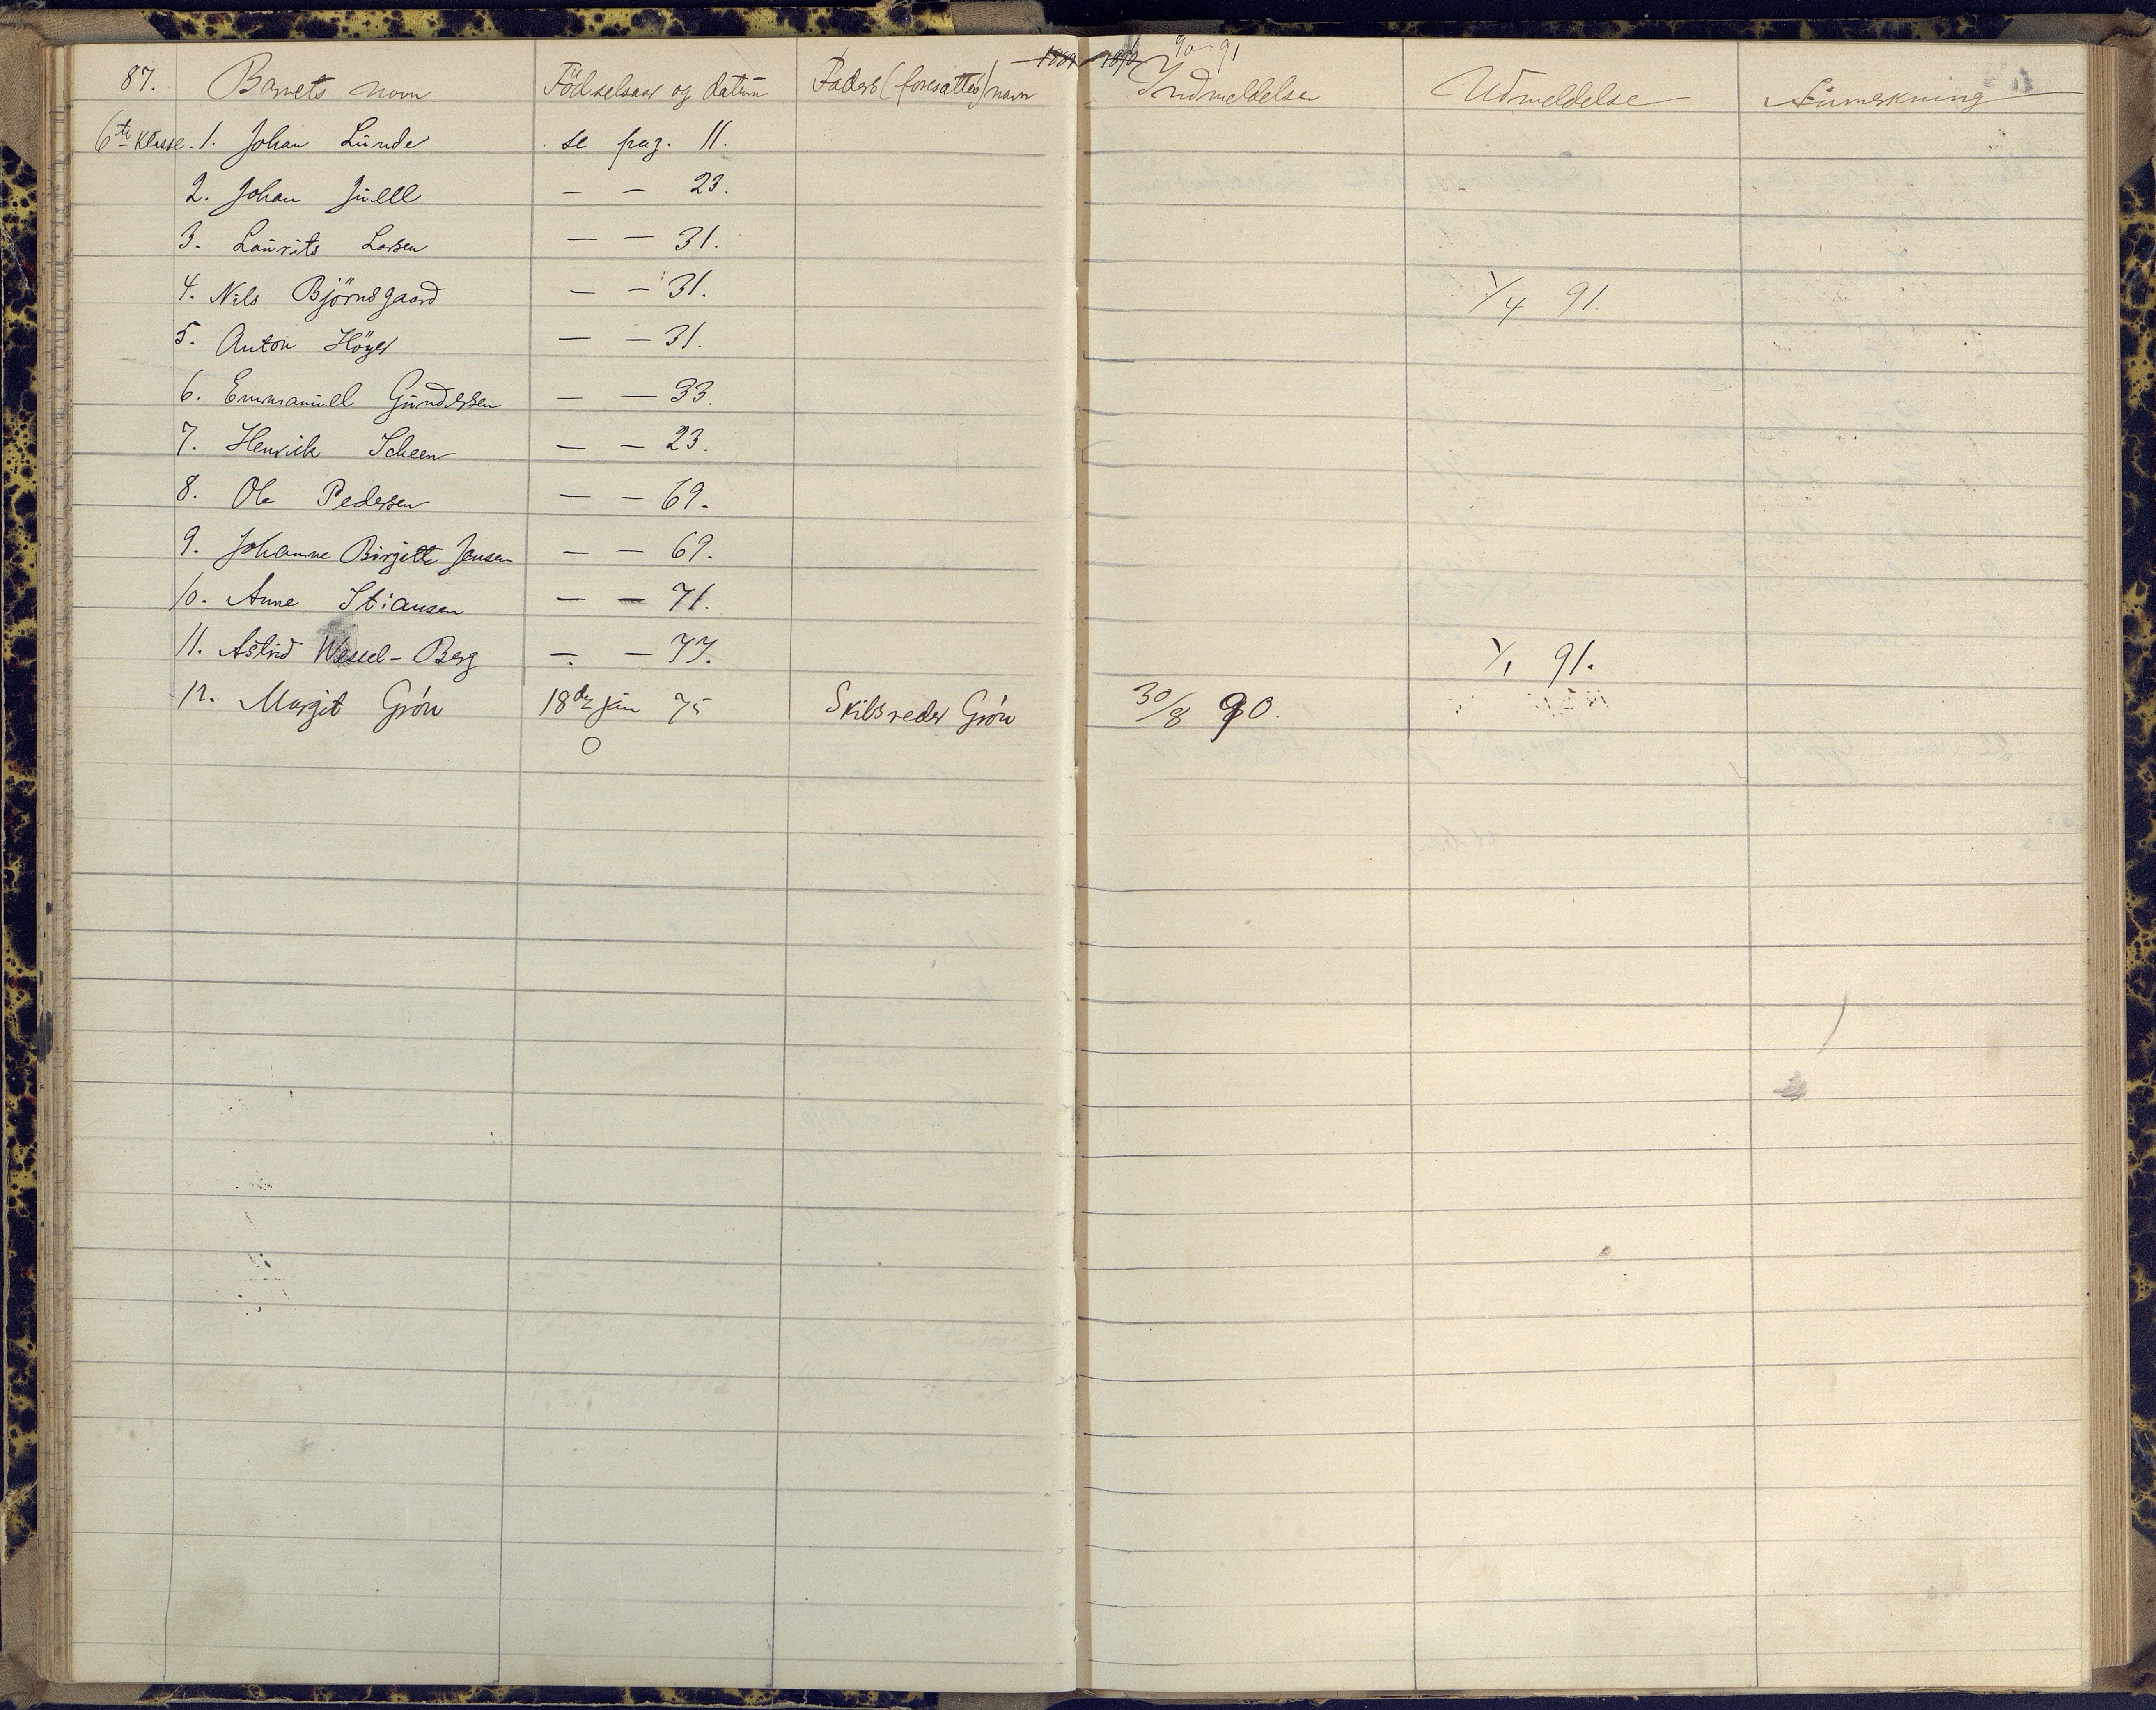 90-91
87. Barnets navn Födselsaar og datum Faders (foresattes) navn 1889-1890 Indmeldelse Udmeldelse Anmerkning
6te Klasse. 1. Johan Lunde se pag. 11.
2. Johan Juell — — 23.
3. Laurits Larsen — — 31.
4. Nils Björnsgaard — — 31. 1/4 91.
5. Anton Höyer — — 31.
6. Emmanuel Gundersen — — 33.
7. Henrik Scheen — — 23.
8. Ole Pedersen — — 69.
9. Johanne Birgitte Jensen — — 69.
10. Anne Stiansen — — 71.
11. Astrid Wessel-Berg — — 77. 1/1 91.
12. Margit Grón 18de jan 75 Skibsreder Grón 30/8 90.